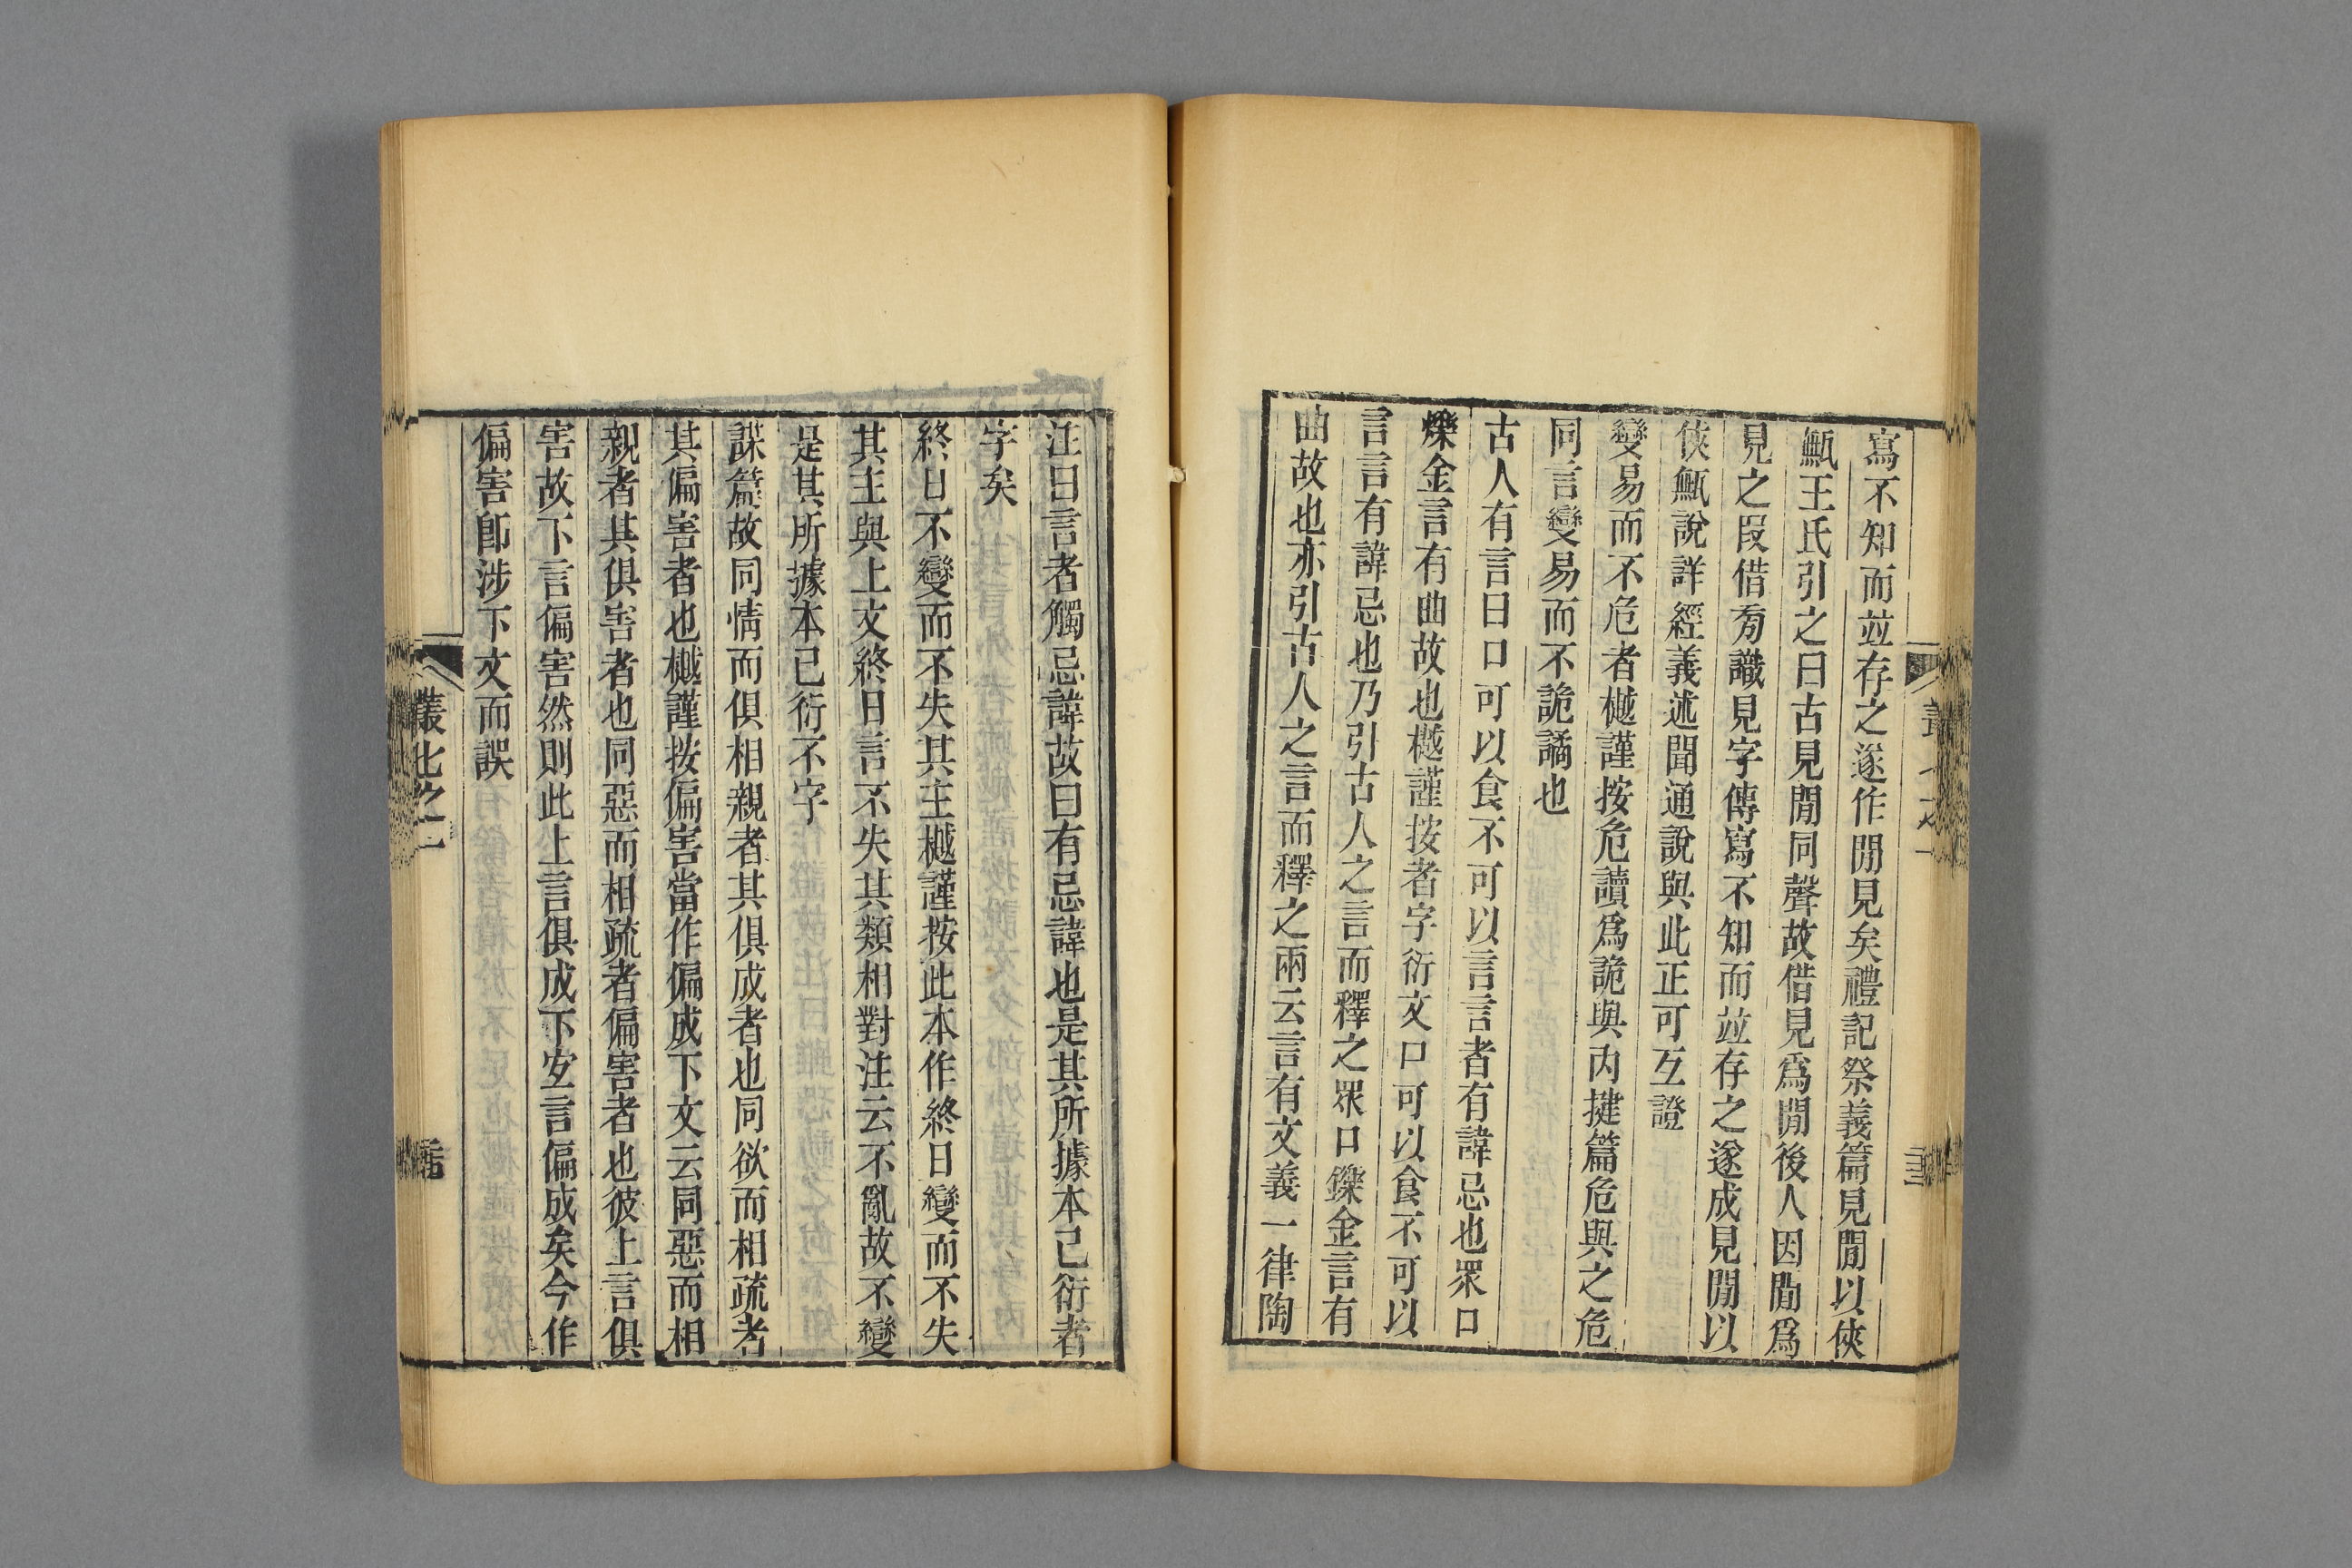 寫不知而竝存之遂作閒見矣禮記祭義篇見閒以俠
甒王氏引之曰古見閒同聲故借見爲閒後人因閒爲
見之叚借旁識見字傳寫不知而竝存之遂成見閒以
俠甒說詳經義述聞通說與此正可互證
變易而不危者樾謹按危讀爲詭與內揵篇危與之危
同言變易而不詭譎也
古人有言曰口可以食不可以言言者有諱忌也眾口
爍金言有曲故也樾謹按者字衍文口可以食不可以
言言有諱忌也乃引古人之言而釋之眾口鑠金言有
曲故也亦引古人之言而釋之兩云言有文義一律陶
注曰言者觸忌諱故曰有忌諱也是其所據本已衍者
字矣
終日不變而不失其主樾謹按此本作終日變而不失
其主與上文終日言不失其類相對注云不亂故不變
是其所據本已衍不字
謀篇故同情而俱相親者其俱成者也同欲而相疏者
其偏害者也樾謹按偏害當作偏成下文云同惡而相
親者其俱害者也同惡而相疏者偏害者也彼上言俱
害故下言偏害然則此上言俱成下宜言偏成矣今作
偏害卽涉下文而誤
叢七之二